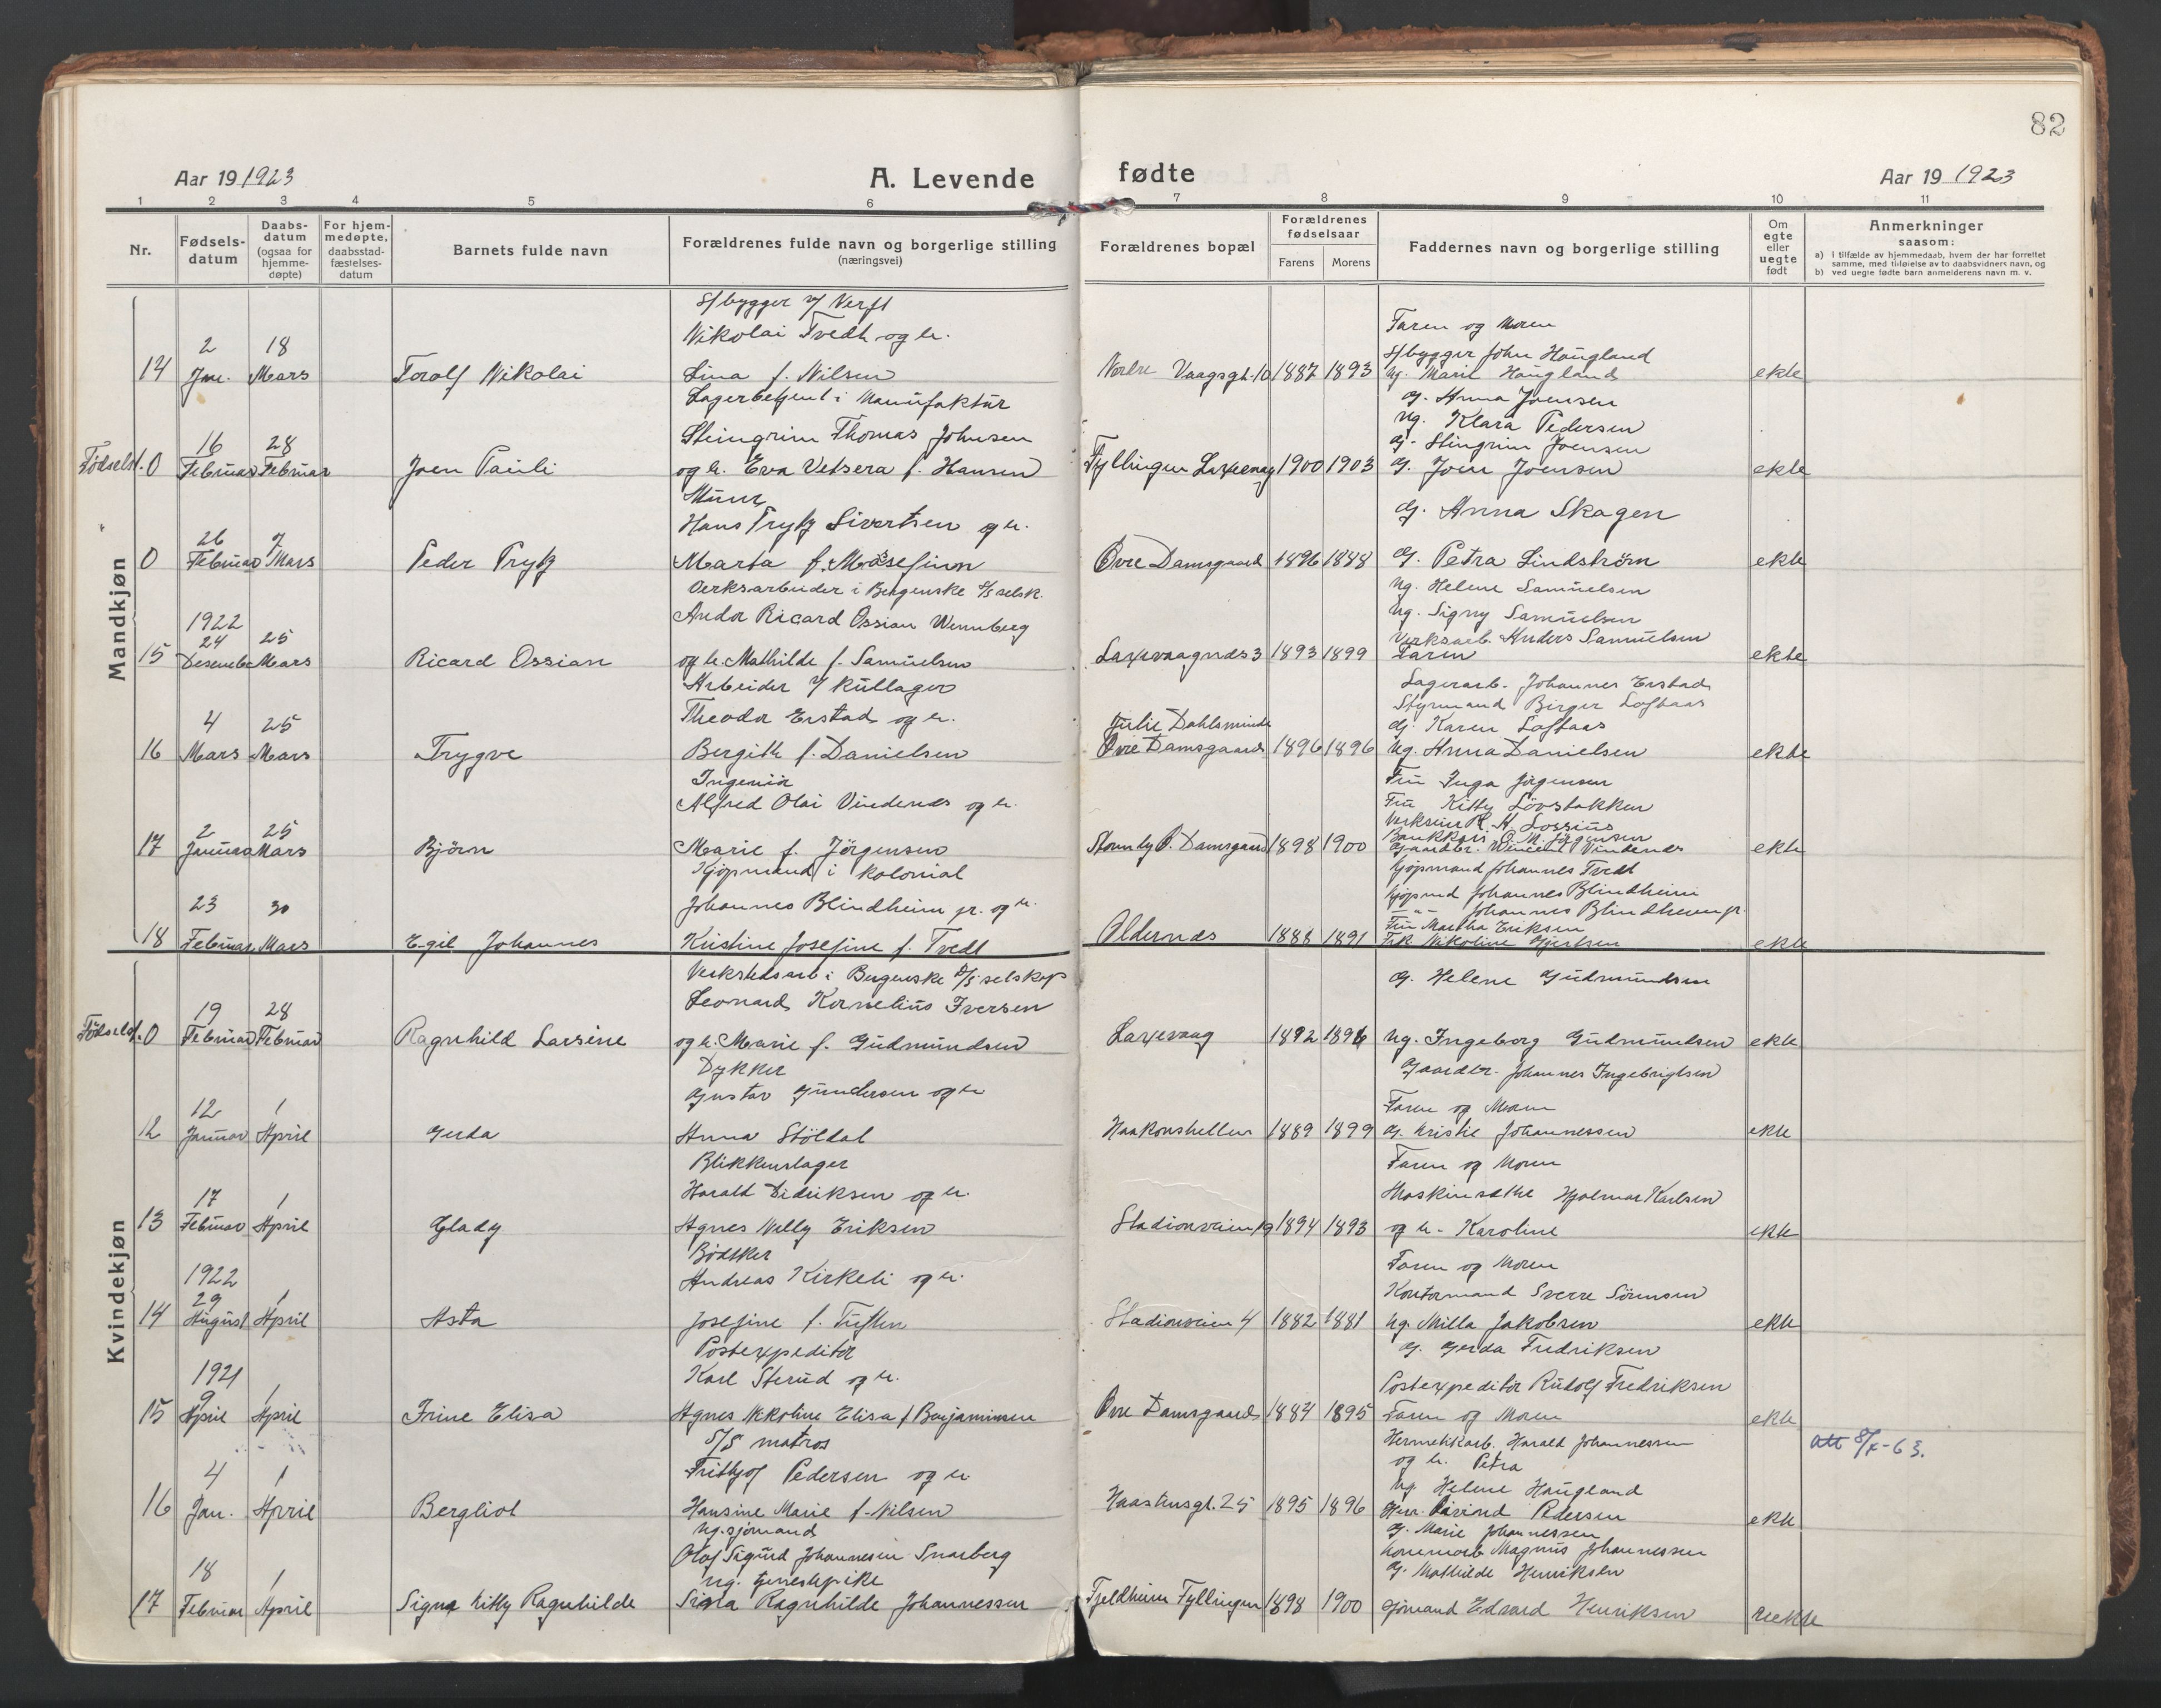 82
Aar 19 1923
A. Levende fødte
Aar 19 1923
1 2 3 4 5 6 7 8 9 10 11
Nr.
Fødsels-datum
Daabs-datum (ogsaa for hjemme-døpte)
For hjem-medøpte, daabsstad-fæstelses-datum
Barnets fulde navn
Forældrenes fulde navn og borgerlige stilling
(næringsvei)
Forældrenes bopæl
Forældrenes fødselsaar
Farens Morens
Faddernes navn og borgerlige stilling
Om egte eller uegte født
Anmerkninger
saasom:
a) i tilfælde av hjemmedaab, hvem der har forrettet samme, med tilføielse av to daabsvidners navn, og
b) ved uegte fødte barn anmelderens navn m. v.
Mandkjøn
14
2 Jan.
18 Mars
Torolf Nikolai
S/bygger v/ Verft
Nikolai Tvedt og h.
Lina f. Nilsen
Vaagsgt. 10
1887 1893
Faren og Moren
S/bygger John Haugland
Ug. Marie Haugland
G. Anna Joensen
ekte
Fødselst. 0
16 Februar
28 Februar
Joen Pauli
Lagerbetjent i Manufaktur
Steingrim Thomas Johnsen
og h. Eva Vetsera f. Hansen
Fyllingen Laxevaag
1900 1903
Ug. Klara Pedersen
G. Steingrim Joensen
G. Joen Joensen
ekte
0
26 Februar
7 Mars
Peder Tryty
Murer
Hans Tryty Sivertsen og h.
Marta f. Mosefinn
Øvre Damsgaard
1896 1888
G. Anna Skagen
G. Petra Lindstrøm
ekte
15
1922
24 Desember
25 Mars
Ricard Ossian
Verksarbeider i Bergenske S/S selsk.
Andor Ricard Ossian Wennberg
og h. Mathilde f. Samuelsen
Laxevaagnes 3
1893 1899
Ug. Helene Samuelsen
Ug. Signy Samuelsen
Verksarb. Anders Samuelsen
Faren
ekte
16
4 Mars
25 Mars
Trygve
Arbeider v/ kullager
Theodor Erstad og h.
Bergith f. Danielsen
Julie Dahlsminde
Øvre Damsgaard
1896 1896
Lagerarb. Johannes Erstad
Styrmand Birger Loftaas
G. Karen Loftaas
Ug. Anna Danielsen
ekte
17
2 Januar
25 Mars
Bjørn
Ingeniør
Alfred Olai Vindenes og h.
Marie f. Jörgensen
Damsgaard
1898 1900
Fru Inga Jörgensen
Fru Kitty Lövstakken
H. Lossius
O. M. Jörgensen
Vincent Vindenes
ekte
18
23 Februar
30 Mars
Egil Johannes
Kjøpmand i kolonial
Johannes Blindheim jr. og h.
Kristine Josefine f. Tvedt
Aldernes
1888 1891
Kjøpmand Johannes Tvedt
Kjøpmd Johannes Blindheim
—"— Johannes Blindheim jr.
Fru Martha Eriksen
Frk Nikoline Gjertsen
ekte
Kvindekjøn
Fødselst. 0
19 Februar
28 Februar
Ragnhild Larsine
Verkstedsarb i Bergenske D/S selskap
Leonard Kornelius Iversen
og h. Marie f. Gudmundsen
Laxevaag
1892 1896
G. Helene Gudmundsen
Ug. Ingeborg Gudmundsen
ekte
12
12 Januar
1 April
Gerda
Dykker
Gustav Gundersen og h
Anna Stöldal
Haakonshellen
1889 1899
Gaardbr. Johannes Ingebrigtsen
Faren og Moren
G. Kristie Johannessen
ekte
13
17 Februar
1 April
Glady
Blikkenslager
Harald Didriksen og h.
Agnes Nelly Eriksen
Stadionveien 19
1894 1893
Faren og Moren
Maskinsæthe Hjalmar Karlsen
og h. Karoline
ekte
14
1922
29 August
1 April
Asta
Bødtker
Andreas Kirkeli og h.
Josefine f. Tuften
Stadionveien 4
1882 1881
Faren og Moren
Kontormand Sverre Sörensen
Ug. Milla Jakobsen
ekte
15
1921
9 April
1 April
Irine Elisa
Postexpeditör
Karl Sterud og h.
Agnes Nikoline Elisa f Benjaminsen
Øvre Damsgaard
1884 1895
G. Gerda Fredriksen
Postexpeditör Rudolf Fredriksen
Faren og Moren
ekte
Att 8/x-63.
16
4 Jan.
1 April
Bergliot
S/S matros
Frithjof Pedersen og h
Hansine Marie f. Nilsen
Haasteinsgt. 25
1895 1896
Hermetikkarb. Harald Johannessen
og h. Petra
Ug. Helene Haugland
Pedersen
ekte
17
18 Februar
1 April
Signe Kitty Ragnhilde
Ug. sjömand
Olaf Sigurd Johannesen Snarberg
Ug. tjenestepike
Signa Ragnhilde Johannessen
Fjeldheim Fyllingen
1898 1900
G. Marie Johannessen
Magnus Johannessen
G. Mathilde Henriksen
Sjömand Edvard Henriksen
uekte